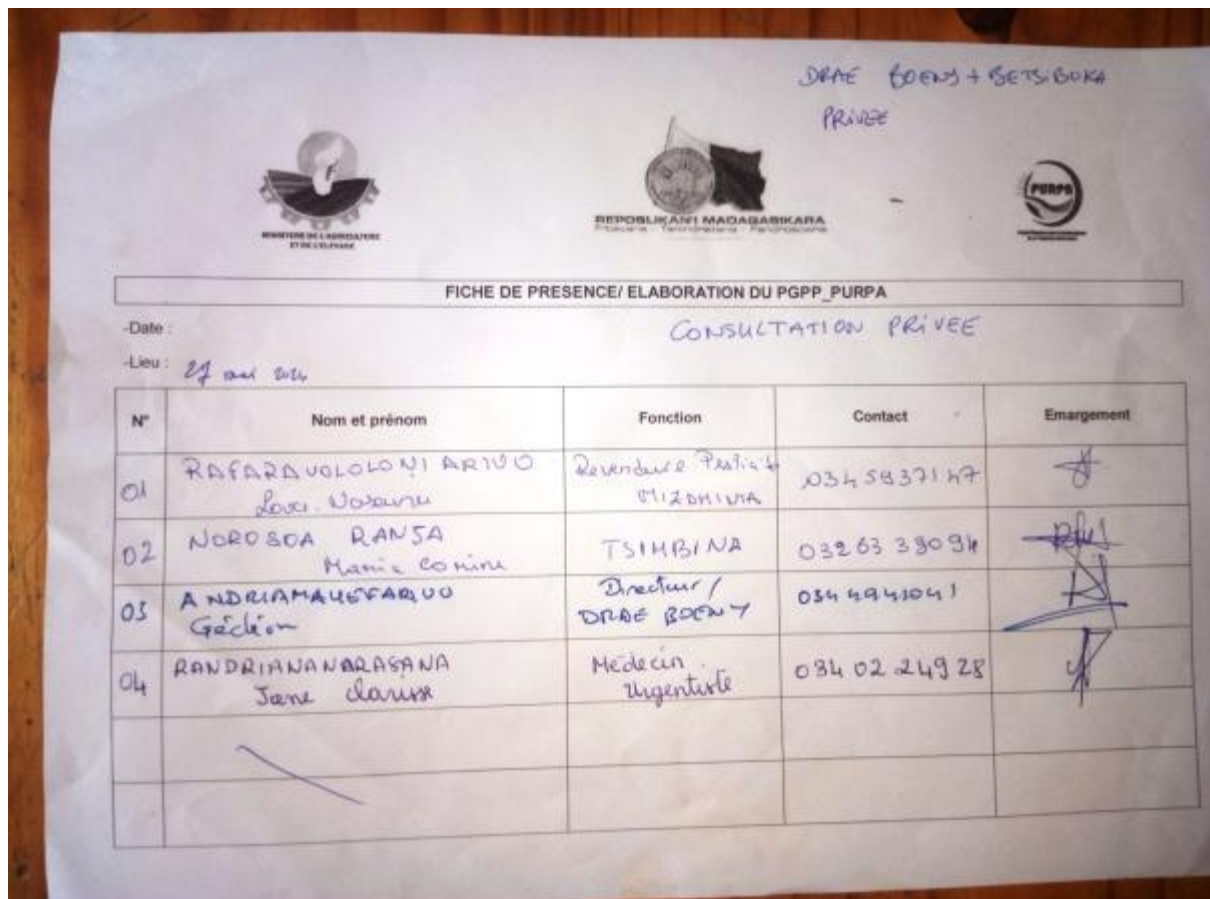 DRAE BOENY + BETSIBOKA
PRIVEE
MINISTERE DE L'AGRICULTURE
ET DE L'ELEVAGE
REPOBLIKAN'I MADAGASIKARA
Fitiavana - Tanindrazana - Fandrosoana
PURPA
FICHE DE PRESENCE/ ELABORATION DU PGPP_PURPA
-Date :
CONSULTATION PRIVEE
-Lieu : 27
N° Nom et prénom Fonction Contact Emargement
01 RAFARAVOLOLONIARIVO
Revendeure
MIZOMINTA
0345937147
02 NOROSOA RANJA
TSIMBINA 03263 39094
03 Gédéon
Directeur /
DRAE BOENY
0344941041
04 RANDRIANANARASANA
Jane Clarisse
Médecin
Urgentiste
034 02 249 28